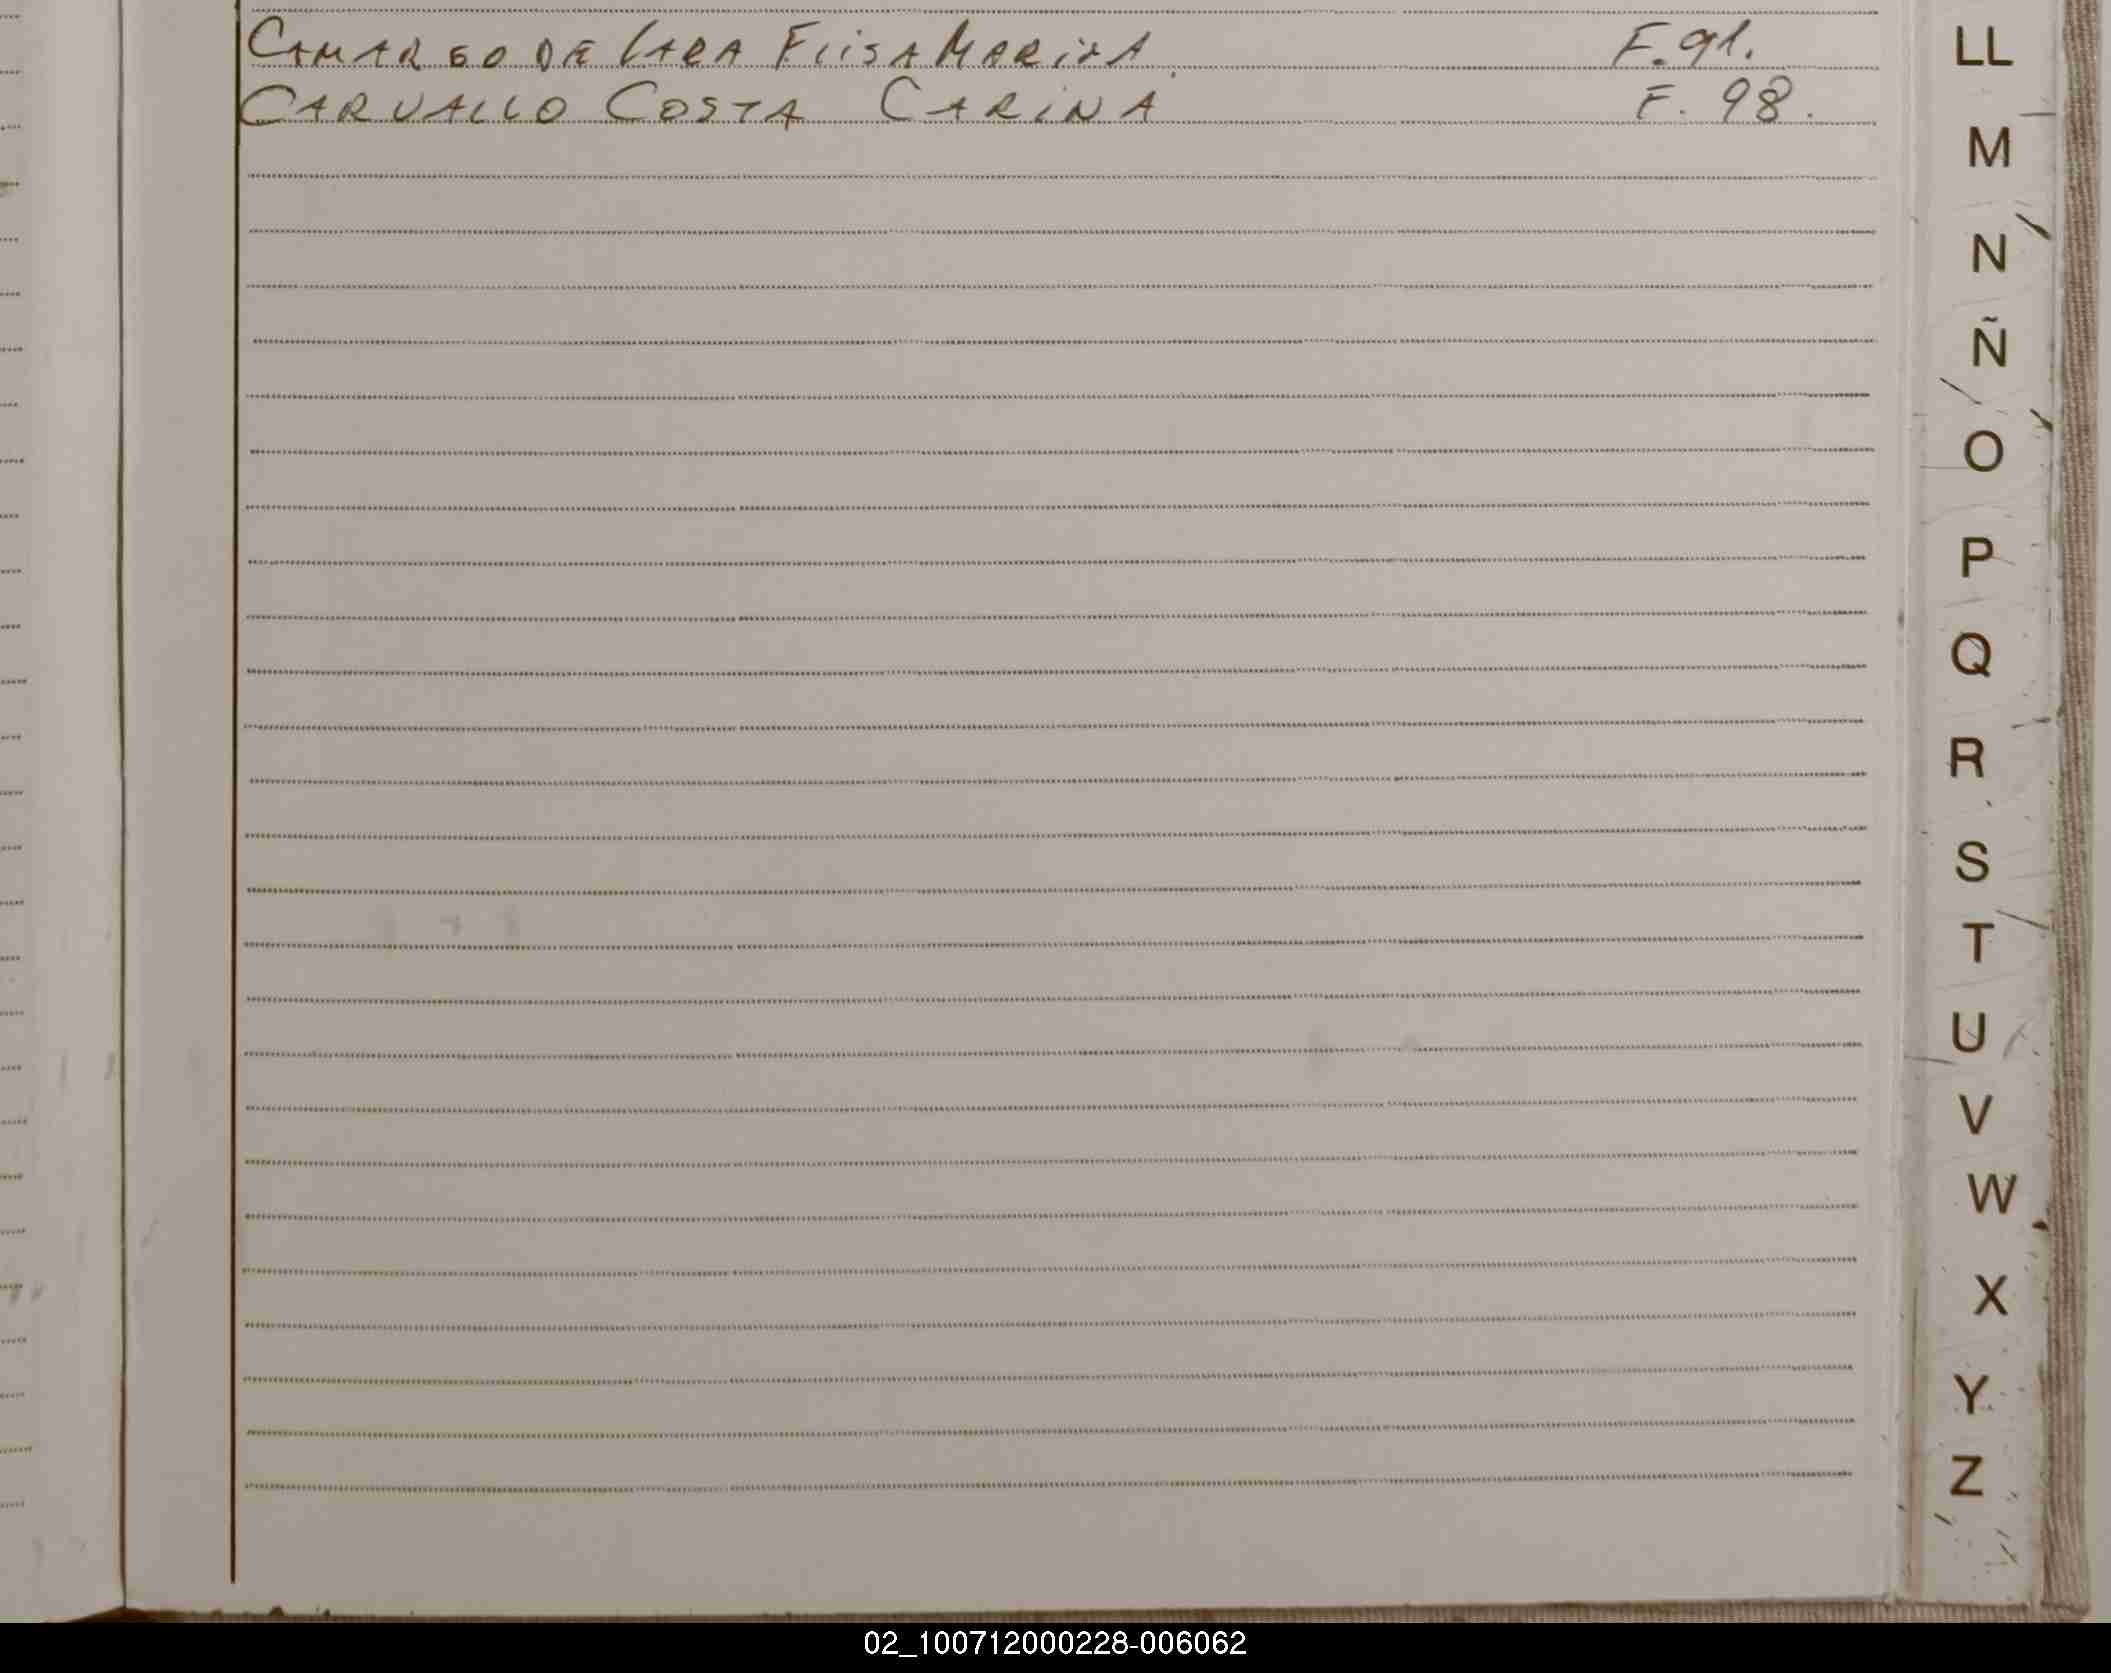 CAMARGO DE LARA ELISA MARIZA F. 91.
CARVALLO COSTA CARINA F. 98.
LL
M
N
Ñ
O
P
Q
R
S
T
U
V
W
X
Y
Z
02_100712000228-006062